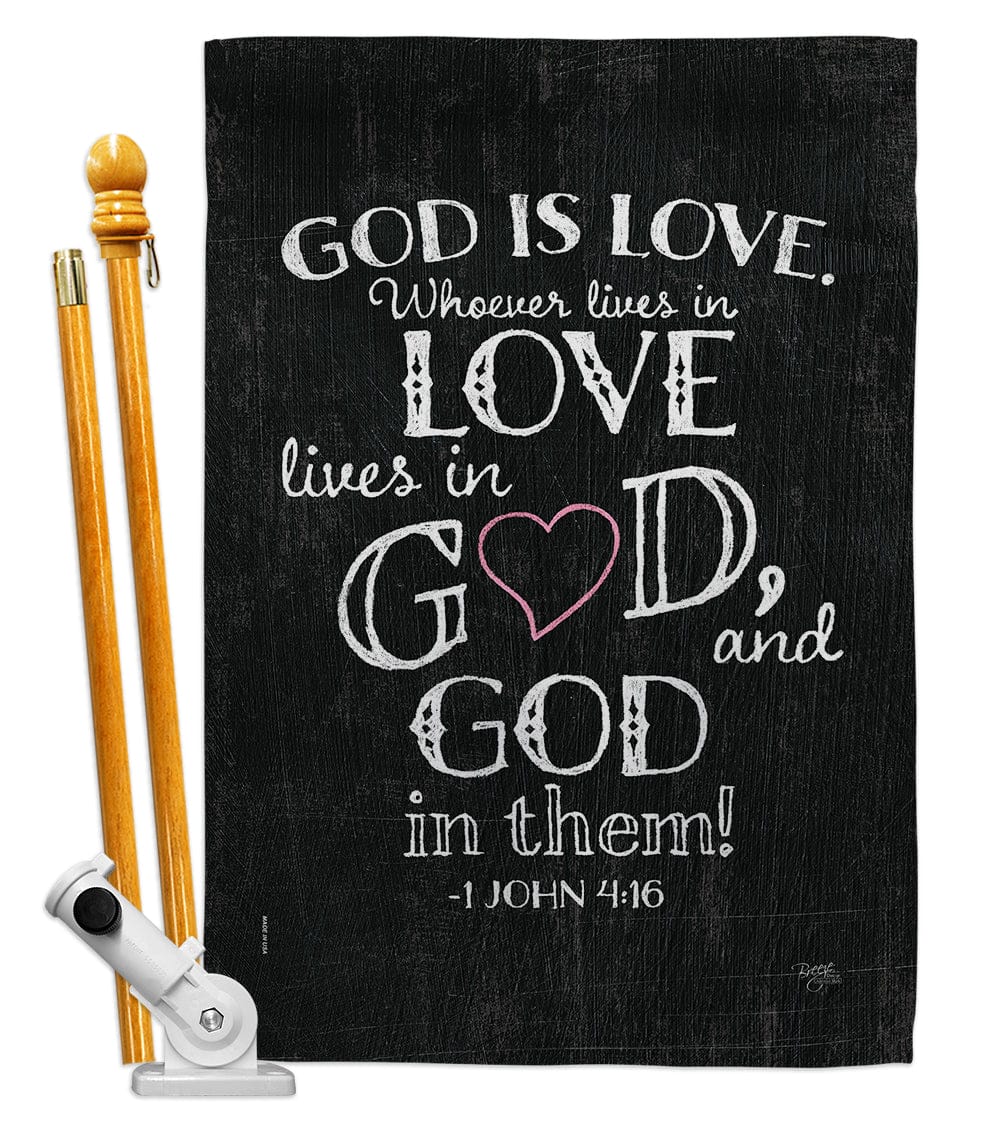 GOD IS LOVE.
Whoever lives in
LOVE
lives in
G♡D,
and
GOD
in them!
-1 JOHN 4:16
MADE IN USA
Breeze